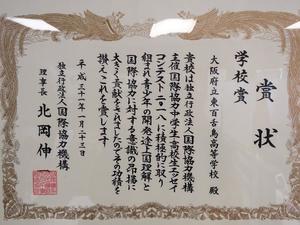 賞状
学校賞
大阪府立東百舌鳥高等学校 殿
貴校は独立行政法人国際協力機構
主催国際協力中学生・高校生エッセイ
コンテスト二〇一八に積極的に取り
組まれ青少年の開発途上国理解と
国際協力に対する意識の昂揚に
大きく貢献をされましたのでその功績を
讃えこれを賞します
平成三十一年一月二十三日
独立行政法人国際協力機構
理事長 北岡伸一